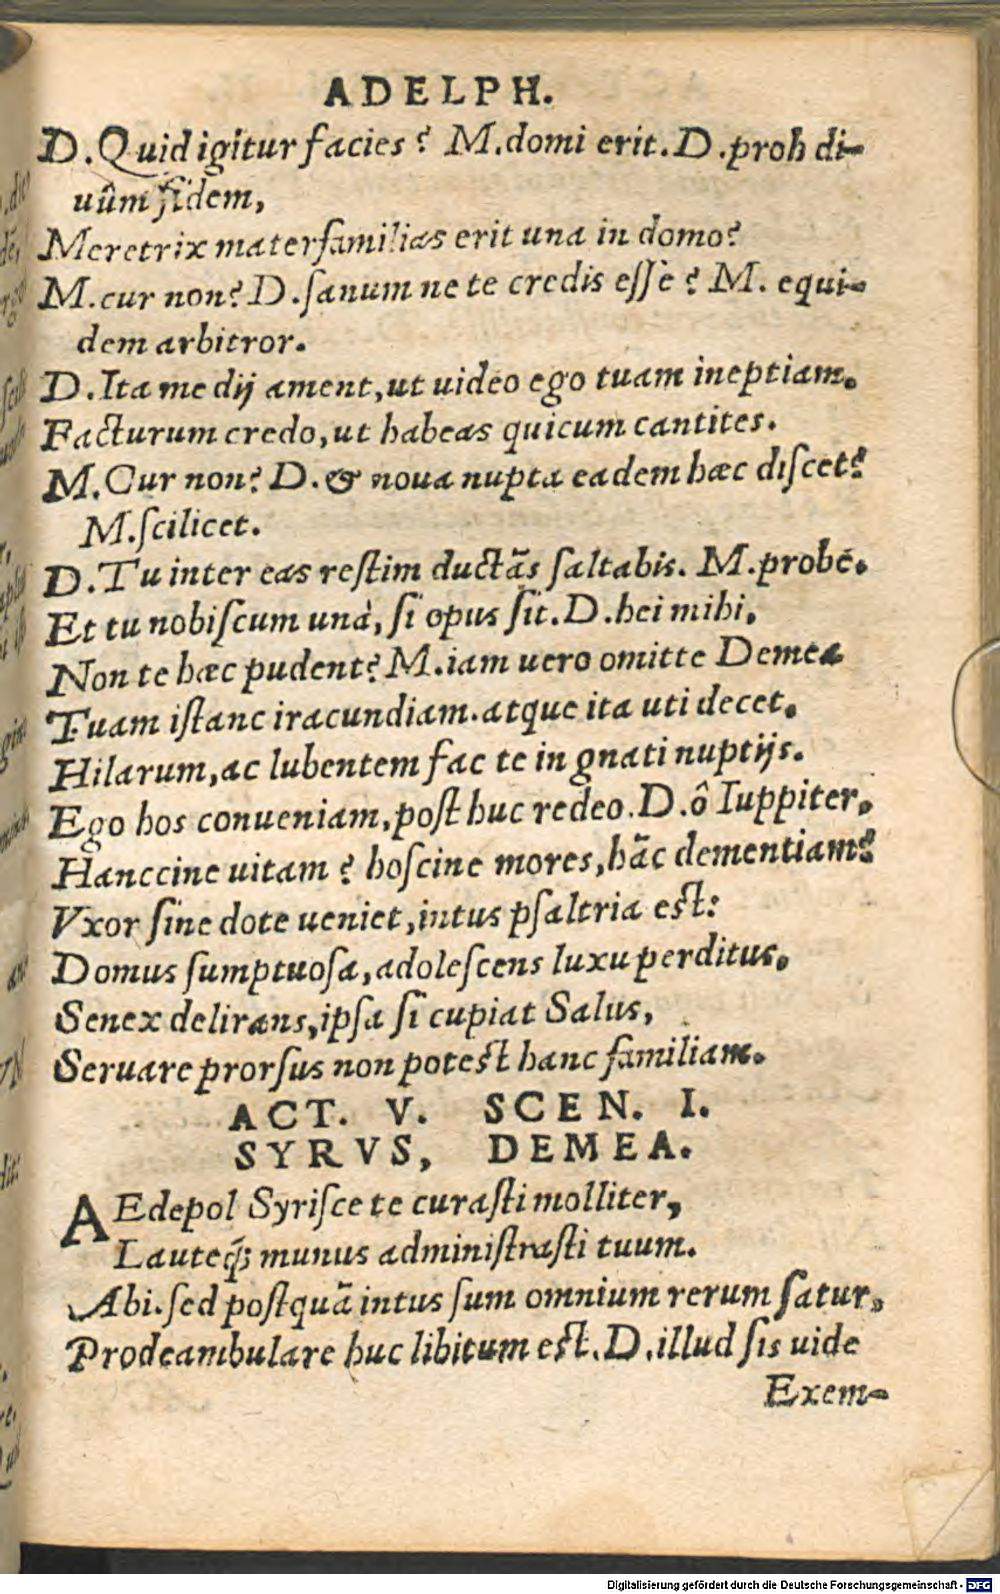 ADELPH.
D.Quid igitur facies? M.domi erit.D.proh di-
uûm fidem,
Meretrix materfamilias erit una in domo?
M.cur non? D.sanum ne te credis esse? M. equi-
dem arbitror.
D.Ita me dij ament,ut uideo ego tuam ineptiam.
Facturum credo,ut habeas quicum cantites.
M.Cur non? D.& noua nupta eadem hæc discet?
M.scilicet.
D.Tu inter eas restim ductãs saltabis. M.probè.
Et tu nobiscum unà, si opus sit.D.hei mihi,
Non te hæc pudent? M.iam uero omitte Demea
Tuam istanc iracundiam.atque ita uti decet.
Hilarum,ac lubentem fac te in gnati nuptijs.
Ego hos conueniam,post huc redeo.D.ô Iuppiter,
Hanccine uitam? hoscine mores,hãc dementiam?
Vxor sine dote ueniet,intus psaltria est:
Domus sumptuosa,adolescens luxu perditus.
Senex delirans,ipsa si cupiat Salus,
Seruare prorsus non potest hanc familiam.
ACT. V. SCEN. I.
SYRVS, DEMEA.
AEdepol Syrisce te curasti molliter,
Lauteq́; munus administrasti tuum.
Abi.sed postquã intus sum omnium rerum satur,
Prodeambulare huc libitum est.D.illud sis uide
Exem-
Digitalisierung gefördert durch die Deutsche Forschungsgemeinschaft - DFG